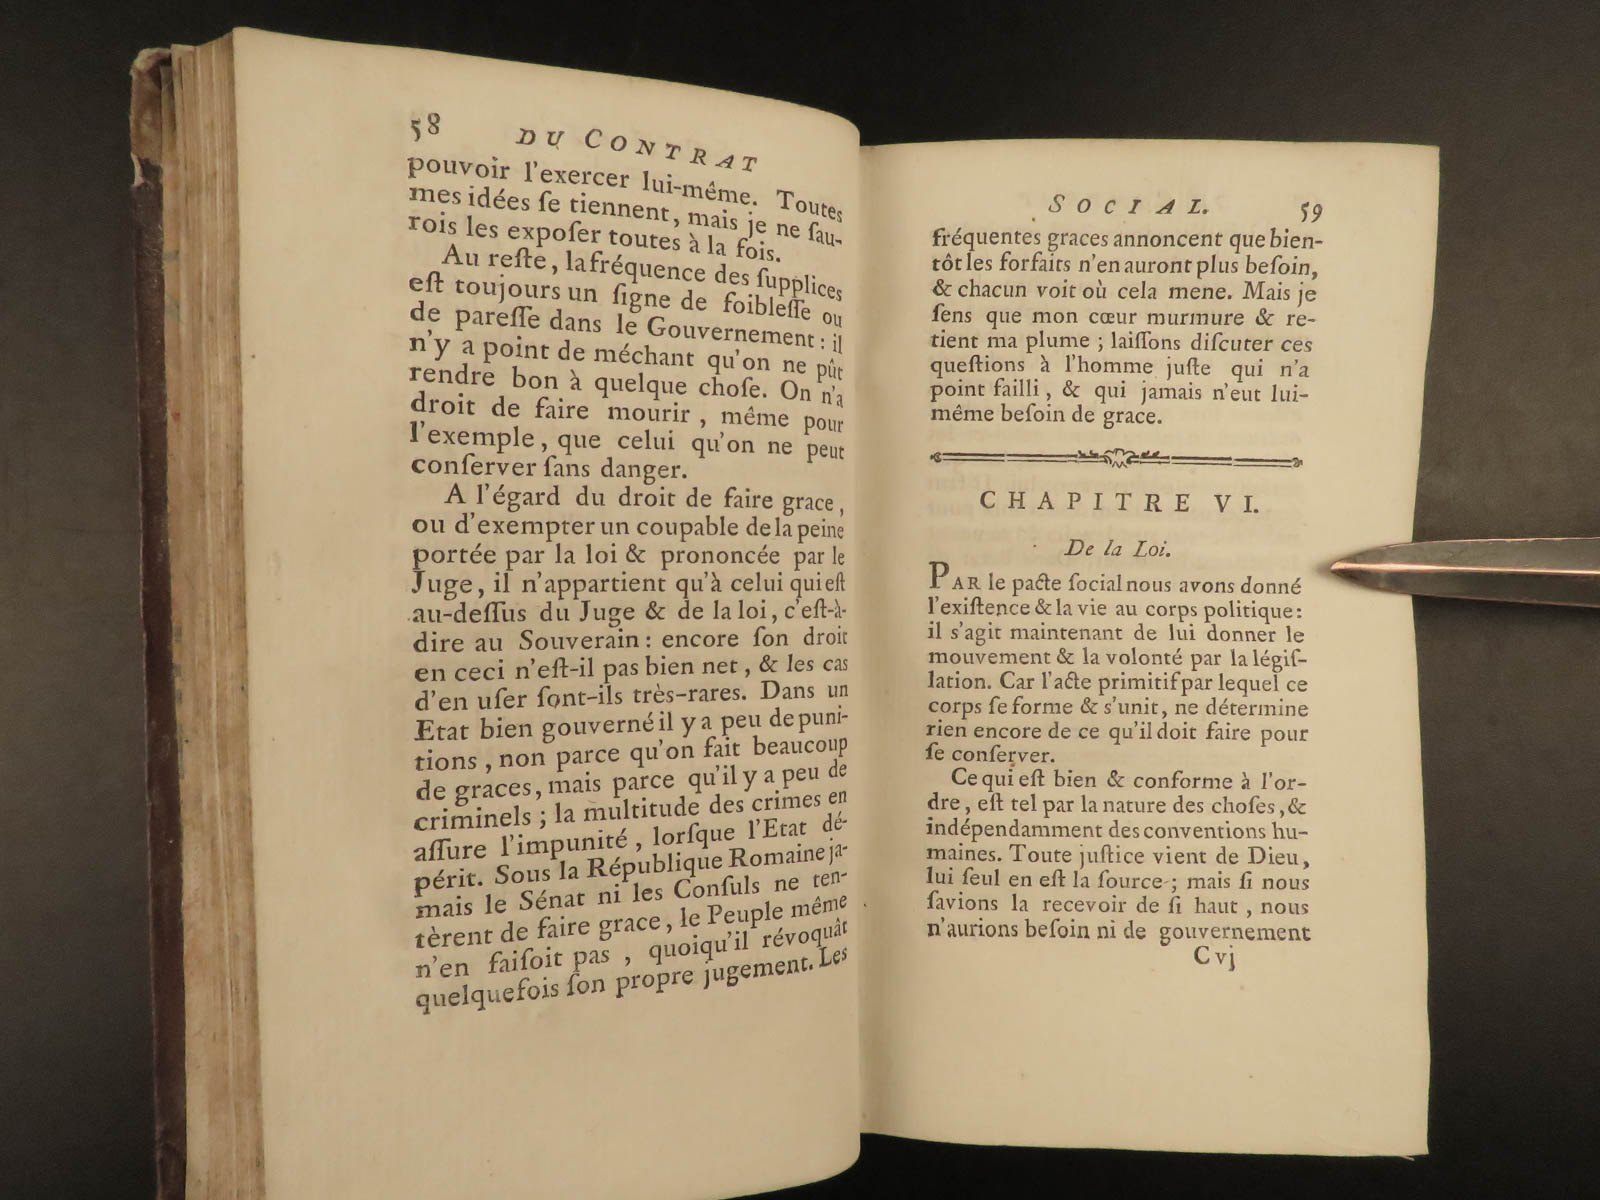 58
DU CONTRAT
pouvoir l'exercer lui-même. Toutes
mes idées ſe tiennent, mais je ne ſau-
rois les expoſer toutes à la fois.
Au reſte, la fréquence des ſupplices
eſt toujours un ſigne de foibleſſe ou
de pareſſe dans le Gouvernement : il
n'y a point de méchant qu'on ne pût
rendre bon à quelque choſe. On n'a
droit de faire mourir, même pour
l'exemple, que celui qu'on ne peut
conſerver ſans danger.
A l'égard du droit de faire grace,
ou d'exempter un coupable de la peine
portée par la loi & prononcée par le
Juge, il n'appartient qu'à celui qui eſt
au-deſſus du Juge & de la loi, c'eſt-à-
dire au Souverain : encore ſon droit
en ceci n'eſt-il pas bien net, & les cas
d'en uſer ſont-ils très-rares. Dans un
Etat bien gouverné il y a peu de puni-
tions, non parce qu'on fait beaucoup
de graces, mais parce qu'il y a peu de
criminels ; la multitude des crimes en
aſſure l'impunité, lorſque l'Etat dé-
périt. Sous la République Romaine ja-
mais le Sénat ni les Conſuls ne ten-
tèrent de faire grace, le Peuple même
n'en faiſoit pas, quoiqu'il révoquât
quelquefois ſon propre jugement. Les
SOCIAL.
59
fréquentes graces annoncent que bien-
tôt les forfaits n'en auront plus beſoin,
& chacun voit où cela mene. Mais je
ſens que mon cœur murmure & re-
tient ma plume ; laiſſons diſcuter ces
queſtions à l'homme juſte qui n'a
point failli, & qui jamais n'eut lui-
même beſoin de grace.
CHAPITRE VI.
De la Loi.
PAR le pacte ſocial nous avons donné
l'exiſtence & la vie au corps politique :
il s'agit maintenant de lui donner le
mouvement & la volonté par la légiſ-
lation. Car l'acte primitif par lequel ce
corps ſe forme & s'unit, ne détermine
rien encore de ce qu'il doit faire pour
ſe conſerver.
Ce qui eſt bien & conforme à l'or-
dre, eſt tel par la nature des choſes, &
indépendamment des conventions hu-
maines. Toute juſtice vient de Dieu,
lui ſeul en eſt la ſource ; mais ſi nous
ſavions la recevoir de ſi haut, nous
n'aurions beſoin ni de gouvernement
C vj